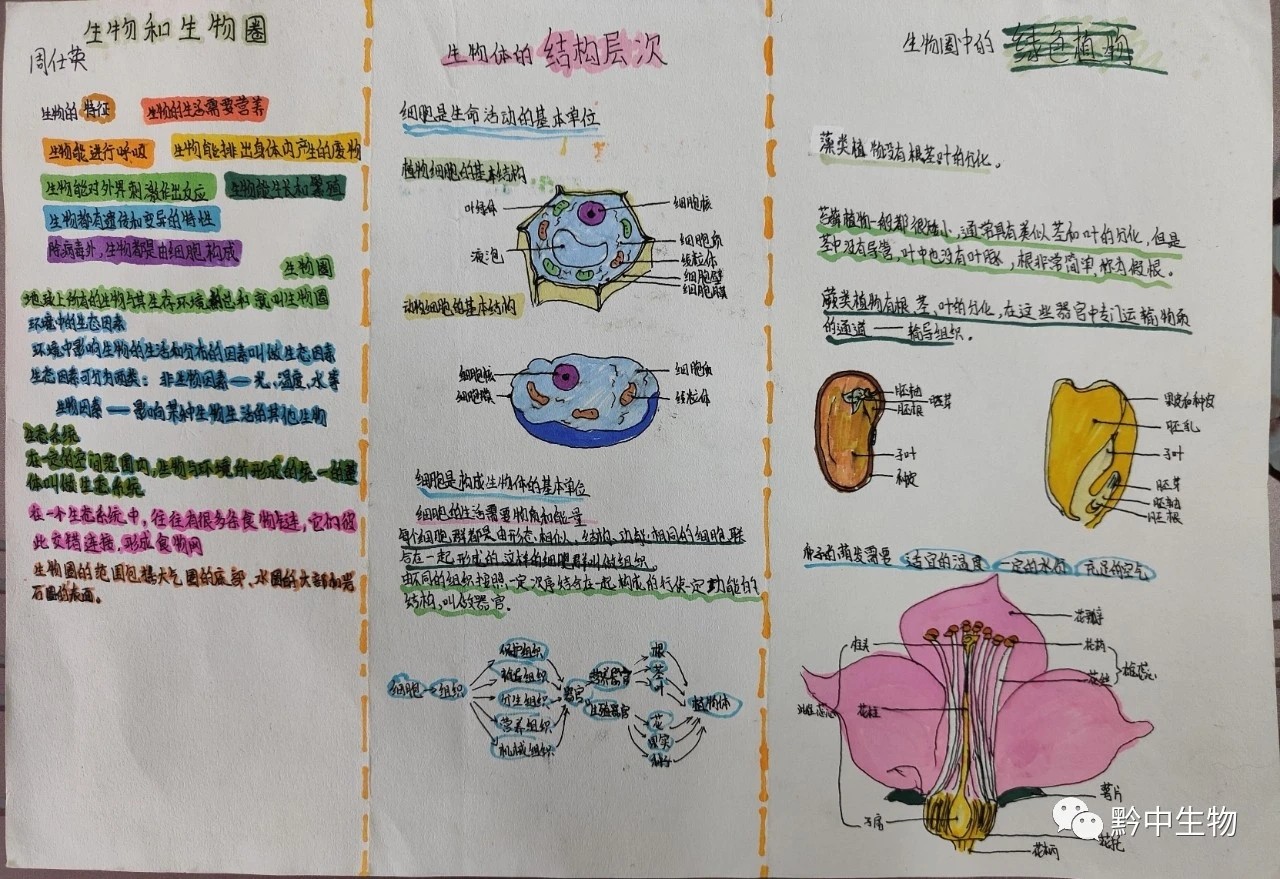 生物和生物圈
周仕英
生物的特征 生物的生活需要营养
生物能进行呼吸 生物能排出身体内产生的废物
生物能对外界刺激作出反应 生物能生长和繁殖
生物都有遗传和变异的特性
除病毒外，生物都是由细胞构成
生物圈
地球上所有的生物与其生态环境的总和就叫生物圈
环境中的生态因素
环境中影响生物的生活和分布的因素叫做生态因素
生态因素可分为两类：非生物因素——光，温度，水等
生物因素——影响某种生物生活的其他生物
生态系统
在一定的空间范围内，生物与环境所形成的统一的整
体叫做生态系统
在一个生态系统中，往往有很多条食物链，它们彼
此交错连接，形成食物网
生物圈的范围包括大气圈的底部，水圈的大部和岩
石圈的表面。
生物体的结构层次
细胞是生命活动的基本单位
植物细胞的基本结构
叶绿体
液泡
细胞核
细胞质
线粒体
细胞壁
细胞膜
动物细胞的基本结构
细胞核
细胞膜
细胞质
线粒体
细胞是构成生物体的基本单位
细胞的生活需要物质和能量
每个细胞群都是由形态，相似，结构、功能相同的细胞联
合在一起形成的，这样的细胞群叫做组织。
由不同的组织按照一定次序结合在一起构成的行使一定功能的
结构，叫做器官。
细胞 组织
保护组织
输导组织
分生组织
营养组织
机械组织
器官
营养器官
生殖器官
根
茎
叶
花
果实
种子
植物体
生物圈中的绿色植物
藻类植物没有根茎叶的分化。
苔藓植物一般都很矮小，通常具有类似茎和叶的分化，但是
茎中没有导管，叶中也没有叶脉，根非常简单，称为假根。
蕨类植物有根、茎、叶的分化，在这些器官中专门运输物质
的通道——输导组织。
胚轴
胚芽
胚根
子叶
种皮
果皮和种皮
胚乳
子叶
胚芽
胚轴
胚根
种子的萌发需要 适宜的温度 一定的水分 充足的空气
花瓣
柱头
花药
花丝
雄蕊
雌蕊
花柱
萼片
子房
花托
花柄
黔中生物